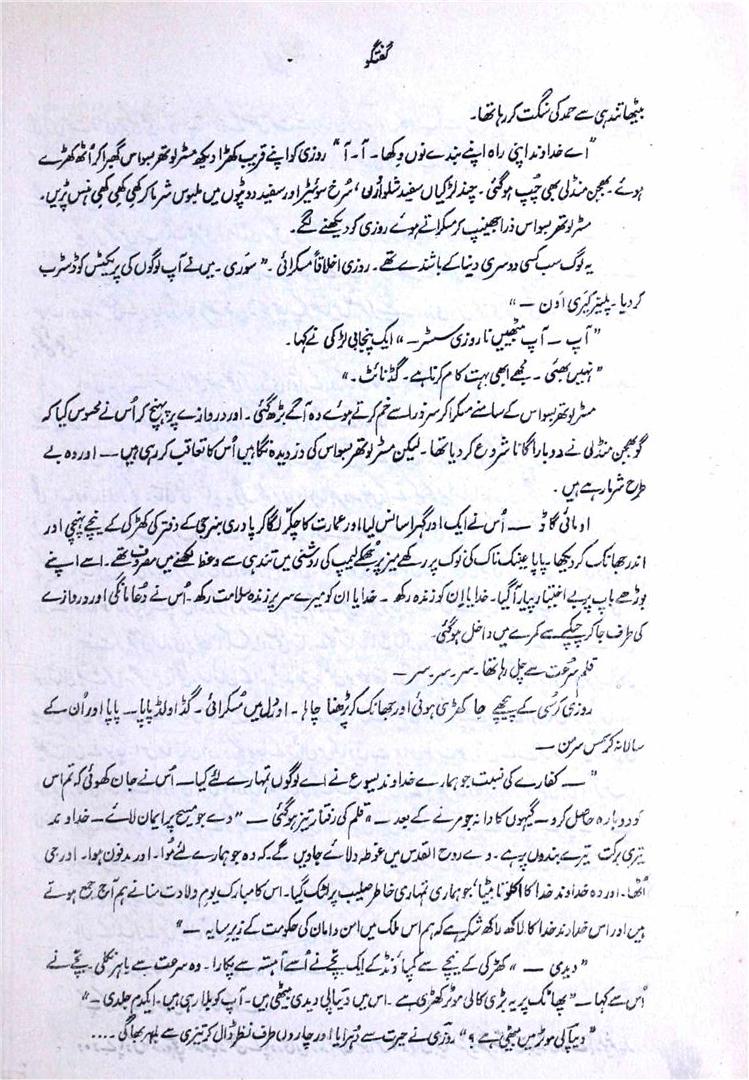 گفتگو
بیٹھا تندہی سے حمد کی سنگت کر رہا تھا۔
"اے خداوند اپنی راہ اپنے بندے نوں وکھا۔ آ۔ آ" روزی کو اپنے قریب کھڑا دیکھ مسٹر لوتھر بسواس گھبرا کر اٹھ کھڑے
ہوئے۔ بھجن منڈلی بھی چپ ہوگئی۔ چند لڑکیاں سفید شلواروں، سُرخ سوئیٹر اور سفید دوپٹوں میں ملبوس شرما کر کھی کھی کھی ہنس پڑیں۔
مسٹر لوتھر بسواس ذرا جھینپ کر مسکراتے ہوئے روزی کو دیکھنے لگے۔
یہ لوگ سب کسی دوسری دنیا کے باشندے تھے۔ روزی اخلاقاً مسکرائی۔ "سوری۔ میں نے آپ لوگوں کی پریکٹس کو ڈسٹرب
کردیا۔ پلیز کیری اون —"
"آپ — آپ بیٹھیں نا روزی سسٹر —" ایک پنجابی لڑکی نے کہا۔
"نہیں بھئی۔ مجھے ابھی بہت کام کرنا ہے۔ گڈ نائٹ۔"
مسٹر لوتھر بسواس کے سامنے مسکرا کر سر ذرا سے خم کرتے ہوئے وہ آگے بڑھ گئی۔ اور دروازے پر پہنچ کر اُس نے محسوس کیا کہ
گو بھجن منڈلی نے دوبارا گانا شروع کردیا تھا۔ لیکن مسٹر لوتھر بسواس کی دزدیدہ نگاہیں اُس کا تعاقب کر رہی ہیں — اور وہ بے
طرح شرما رہے ہیں۔
او مائی گاڈ — اُس نے ایک اور گہرا سانس لیا اور عمارت کا چکر لگا کر پادری بنرجی کے دفتر کی کھڑکی کے نیچے پہنچی اور
اندر جھانک کر دیکھا۔ پاپا عینک ناک کی نوک پر رکھے میز پر جھکے لیمپ کی روشنی میں تندہی سے وعظ لکھنے میں مصروف تھے۔ اسے اپنے
بوڑھے باپ پر بے اختیار پیار آگیا۔ خدایا ان کو زندہ رکھ۔ خدایا ان کو میرے سر پر زندہ سلامت رکھ۔ اُس نے دُعا مانگی اور دروازے
کی طرف جا کر چپکے سے کمرے میں داخل ہوگئی۔
قلم سرعت سے چل رہا تھا۔ سر۔ سر۔ سر —
روزی کرسی کے پیچھے جا کھڑی ہوئی اور جھانک کر پڑھنا چاہا۔ اور دل میں مُسکرائی۔ گڈ اولڈ پاپا — پاپا اور اُن کے
سالانہ کرسمس سرمن —
"— کفارے کی نسبت جو ہمارے خداوند یسوع نے اے لوگوں تمہارے لئے کیا — اُس نے جان کھوئی کہ تم اس
کو دوبارہ حاصل کرو — گیہوں کا دانہ جو مرنے کے بعد —" قلم کی رفتار تیز ہوگئی — "وے جو مسیح پر ایمان لائے — خداوند
تیری برکت تیرے بندوں پر ہے۔ وے روح القدس میں غوطہ دلائے جاویں گے۔ کہ وہ جو ہمارے لئے مُوا۔ اور مدفون ہوا۔ اور جی
اُٹھا۔ اور وہ خداوند خدا کا اکلوتا بیٹا جو ہماری تمہاری خاطر صلیب پر لٹک گیا۔ اس کا مبارک یوم ولادت منانے ہم آج جمع ہوتے
ہیں اور اس خداوند خدا کا لاکھ لاکھ شکر ہے کہ ہم اس ملک میں امن و امان کی حکومت کے زیر سایہ —"
"دیدی —" کھڑکی کے نیچے سے کمپاؤنڈ کے ایک بچے نے اُسے آہستہ سے پکارا۔ وہ سرعت سے باہر نکلی۔ بچے نے
اُس سے کہا — "پھاٹک پر یہ بڑی کالی موٹر کھڑی ہے۔ اس میں دیپالی دیدی بیٹھی ہیں۔ آپ کو بلا رہی ہیں۔ ایکدم جلدی —"
"دیپالی موٹر میں بیٹھی ہے؟" روزی نے حیرت سے دُہرایا اور چاروں طرف نظر ڈال کر تیزی سے باہر بھاگی ....